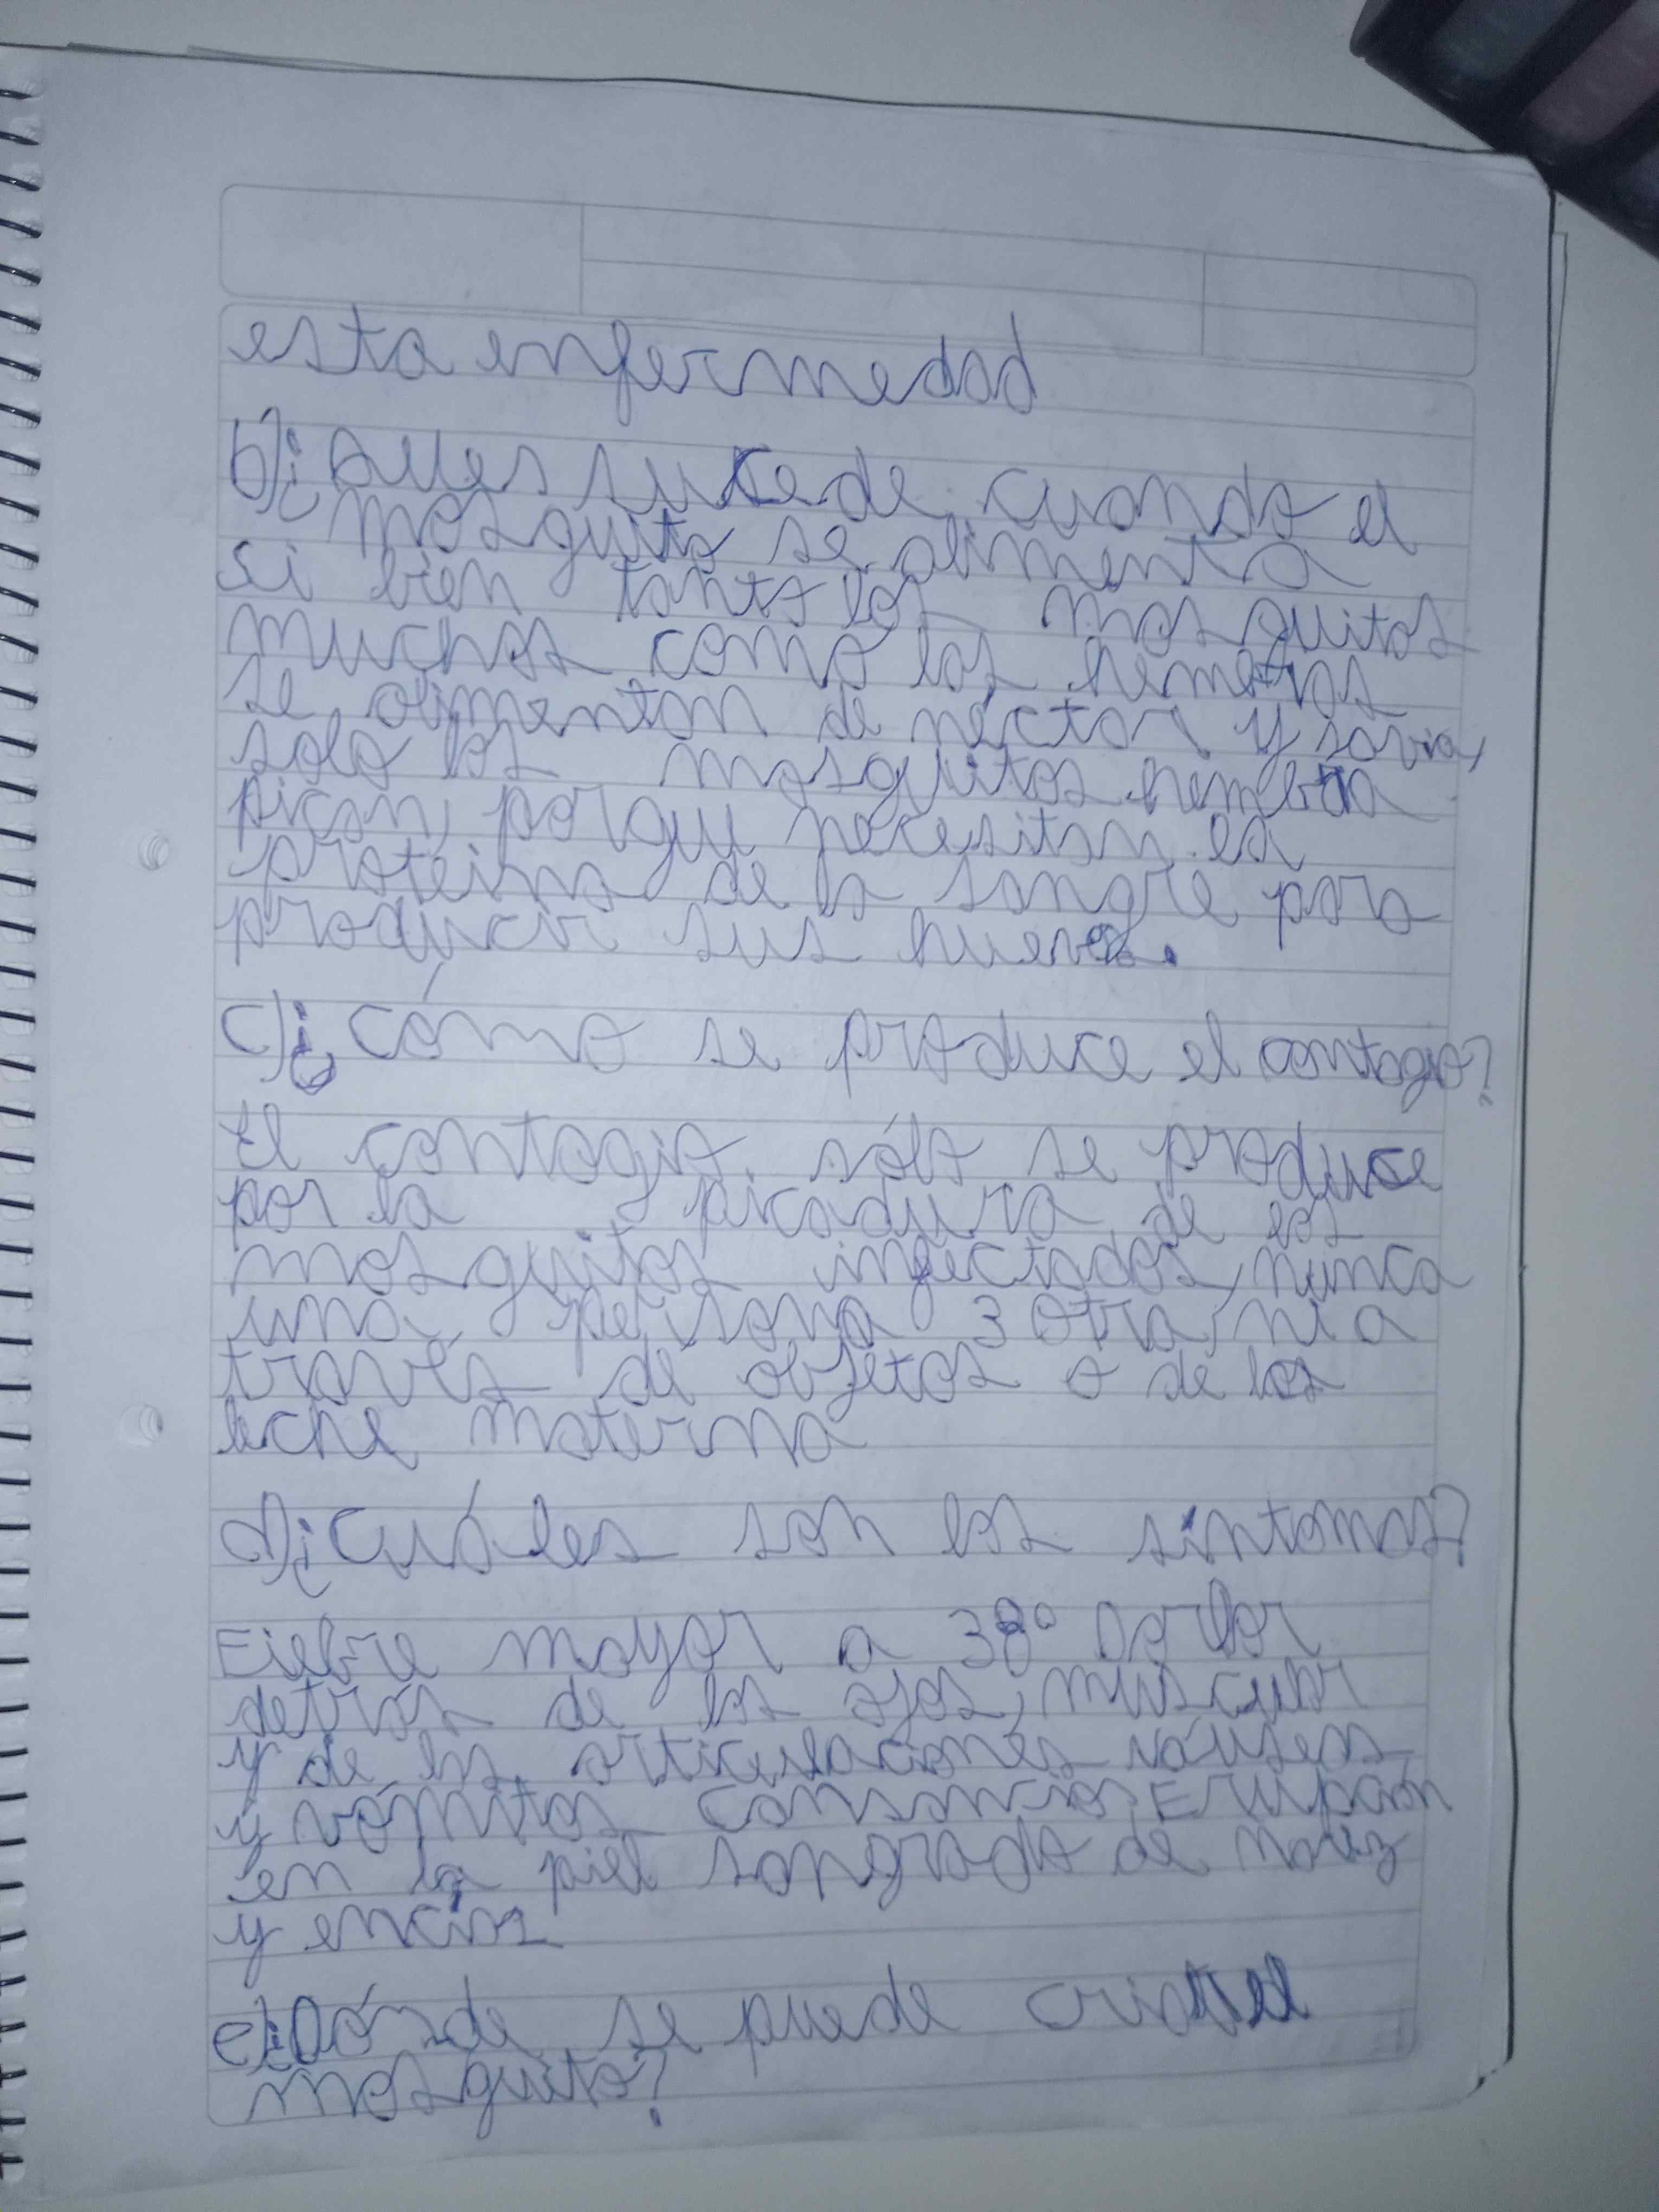 esta enfermedad
b)¿Ques sucede cuando el
mosquito se alimenta
si bien tanto los mosquitos
muchos como los hembras
se alimentan de néctar y savia,
solo los mosquitos hembra
pican, porqu necesitan la
proteina de la sangre para
producir sus huevos.
c)¿cómo se produce el contagio?
El contagio sólo se produce
por la picadura de los
mosquitos infectados, nunca
una persona a otra, ni a
través de objetos o de las
leche materna
d)¿cuáles son los sintomas?
Fiebre mayor a 38° Dorlor
detrás de los ojos, muscular
y de las articulaciones náuseas
y vómitos cansancio, Erupción
en la piel sangrado de nariz
y encias
e)¿Dónde se puede criar el
mosquito?